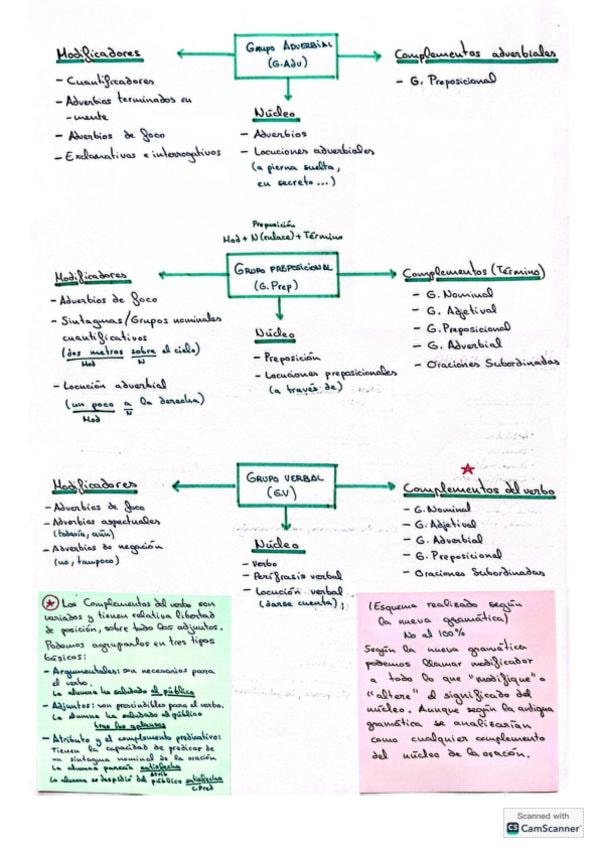 Modificadores
- Cuantificadores
- Adverbios terminados en
-mente
- Adverbios de foco
- Exclamativos e interrogativos
GRUPO ADVERBIAL
(G.Adv)
Núcleo
- Adverbios
- Locuciones adverbiales
(a pierna suelta,
en secreto...)
Complementos adverbiales
- G. Preposicional
Preposición
Mod + N (enlace) + Término
Modificadores
- Adverbios de foco
- Sintagmas/Grupos nominales
cuantificativos
(dos metros sobre el cielo)
Mod N
- Locución adverbial
(un poco a la derecha)
Mod N
GRUPO PREPOSICIONAL
(G.Prep)
Núcleo
- Preposición
- Locuciones preposicionales
(a través de)
Complementos (Término)
- G. Nominal
- G. Adjetival
- G. Preposicional
- G. Adverbial
- Oraciones Subordinadas
Modificadores
- Adverbios de foco
- Adverbios aspectuales
(todavía, aún)
- Adverbios de negación
(no, tampoco)
GRUPO VERBAL
(G.V)
Núcleo
- Verbo
- Perífrasis verbal
- Locución verbal
(darse cuenta)
Complementos del verbo
- G. Nominal
- G. Adjetival
- G. Adverbial
- G. Preposicional
- Oraciones Subordinadas
Los Complementos del verbo son
variados y tienen relativa libertad
de posición, sobre todo los adjuntos.
Podemos agruparlos en tres tipos
básicos:
- Argumentales: son necesarios para
el verbo.
La alumna ha saludado al público
- Adjuntos: son prescindibles para el verbo.
La alumna ha saludado al público
tras los aplausos
- Atributo y el complemento predicativo:
Tienen la capacidad de predicar de
un sintagma nominal de la oración
La alumna parecía satisfecha
Atrib
La alumna se despidió del público satisfecha
C.Pred
(Esquema realizado según
la nueva gramática)
No al 100%
Según la nueva gramática
podemos llamar modificador
a todo lo que "modifique" o
"altere" el significado del
núcleo. Aunque según la antigua
gramática se analizarían
como cualquier complemento
del núcleo de la oración.
Scanned with
CS CamScanner